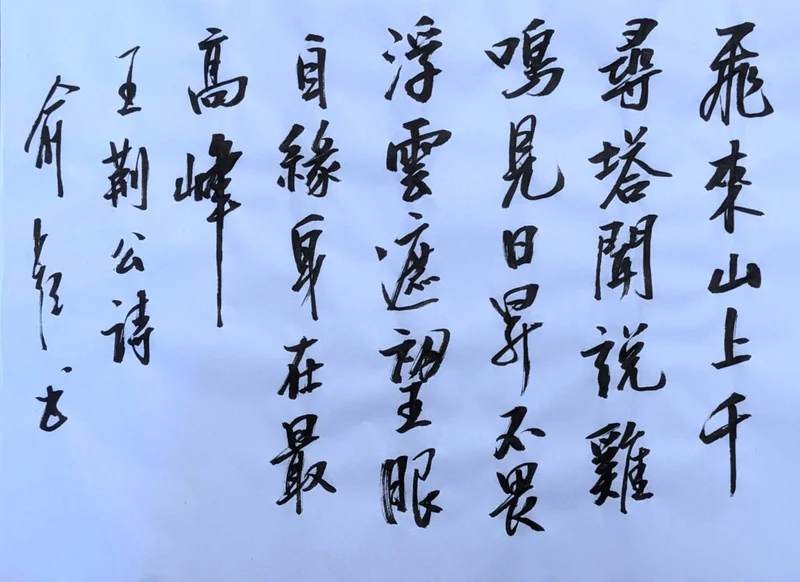 飛來山上千
尋塔聞説雞
鳴見日昇不畏
浮雲遮望眼
自緣身在最
高峰
王荆公詩
俞
书